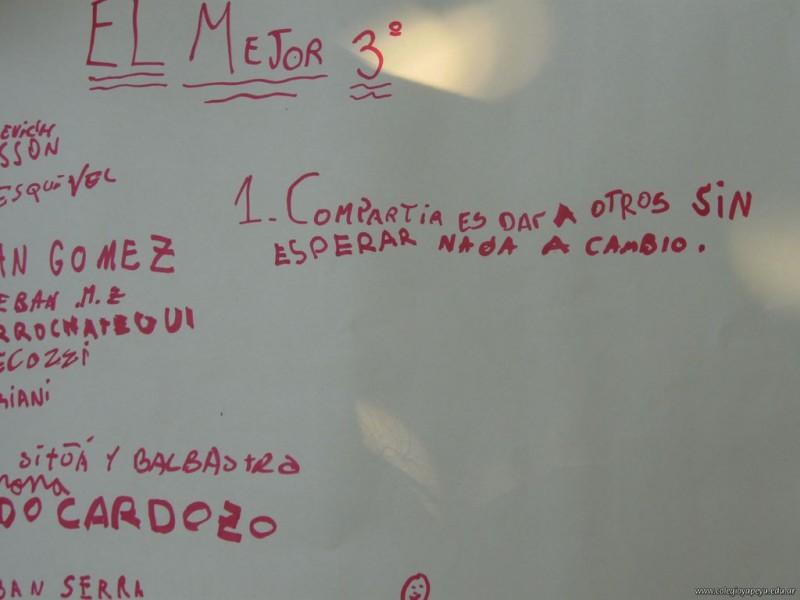 EL MEJOR 3º
SSON
ESQUIVEL
1. COMPARTIR ES DAR A OTROS SIN
ESPERAR NADA A CAMBIO.
AN GOMEZ
EBAN .M.Z
ECOZZI
IANI
SITOÁ Y BALBASTRO
DO CARDOZO
BAN SERRA
www.colegioyapeyu.edu.ar